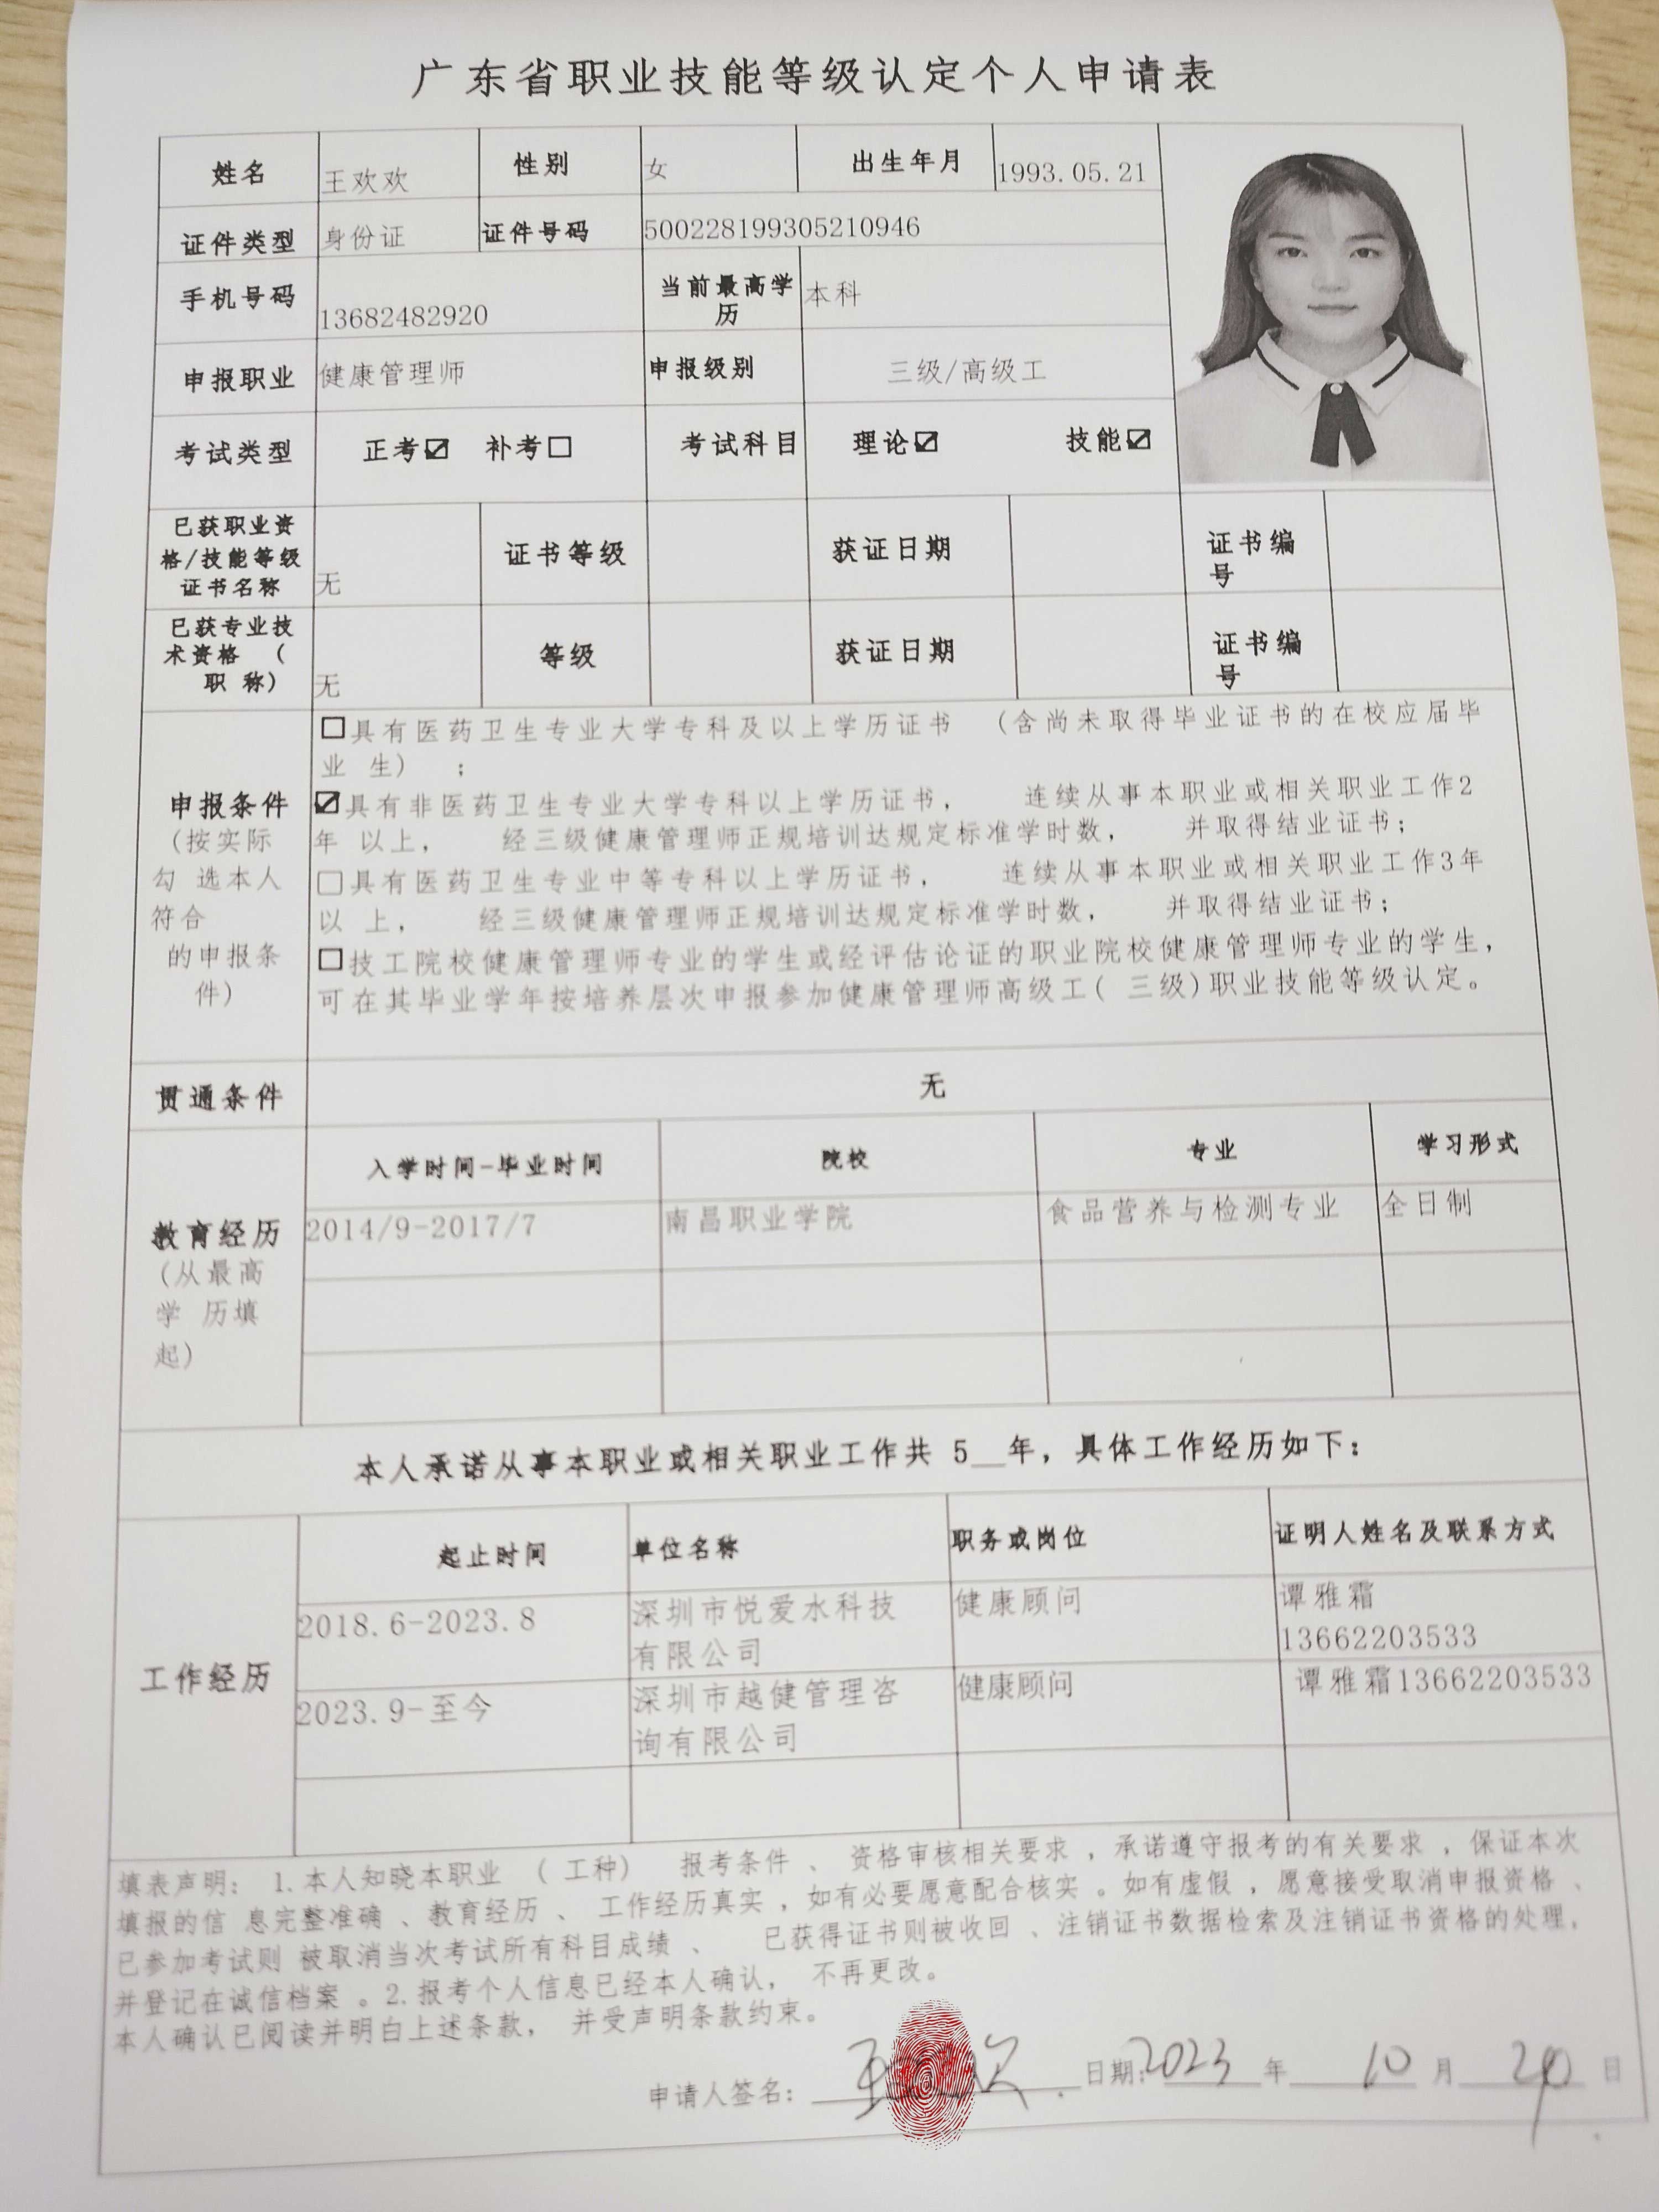 广东省职业技能等级认定个人申请表
姓名 王欢欢 性别 女 出生年月 1993.05.21
证件类型 身份证 证件号码 500228199305210946
手机号码 13682482920 当前最高学历 本科
申报职业 健康管理师 申报级别 三级/高级工
考试类型 正考☑ 补考☐ 考试科目 理论☑ 技能☑
已获职业资格/技能等级证书名称 无 证书等级 获证日期 证书编号
已获专业技术资格 （职 称） 无 等级 获证日期 证书编号
申报条件
(按实际
勾 选本人
符合
的申报条
件)
☐具有医药卫生专业大学专科及以上学历证书 （含尚未取得毕业证书的在校应届毕
业 生） ；
☑具有非医药卫生专业大学专科以上学历证书， 连续从事本职业或相关职业工作2
年 以上， 经三级健康管理师正规培训达规定标准学时数， 并取得结业证书；
☐具有医药卫生专业中等专科以上学历证书， 连续从事本职业或相关职业工作3年
以 上， 经三级健康管理师正规培训达规定标准学时数， 并取得结业证书；
☐技工院校健康管理师专业的学生或经评估论证的职业院校健康管理师专业的学生，
可在其毕业学年按培养层次申报参加健康管理师高级工( 三级)职业技能等级认定。
贯通条件 无
教育经历
(从最高
学 历填
起)
入学时间-毕业时间 院校 专业 学习形式
2014/9-2017/7 南昌职业学院 食品营养与检测专业 全日制
本人承诺从事本职业或相关职业工作共 5__年，具体工作经历如下：
工作经历
起止时间 单位名称 职务或岗位 证明人姓名及联系方式
2018.6-2023.8 深圳市悦爱水科技有限公司 健康顾问 谭雅霜 13662203533
2023.9-至今 深圳市越健管理咨询有限公司 健康顾问 谭雅霜13662203533
填表声明： 1.本人知晓本职业 （ 工种） 报考条件 、 资格审核相关要求 ，承诺遵守报考的有关要求 ，保证本次
填报的信 息完整准确 、教育经历 、 工作经历真实 ，如有必要愿意配合核实 。如有虚假 ，愿意接受取消申报资格 、
已参加考试则 被取消当次考试所有科目成绩 、 已获得证书则被收回 、注销证书数据检索及注销证书资格的处理，
并登记在诚信档案 。2.报考个人信息已经本人确认， 不再更改。
本人确认已阅读并明白上述条款， 并受声明条款约束。
申请人签名： 王欢欢 日期：2023 年 10 月 24 日